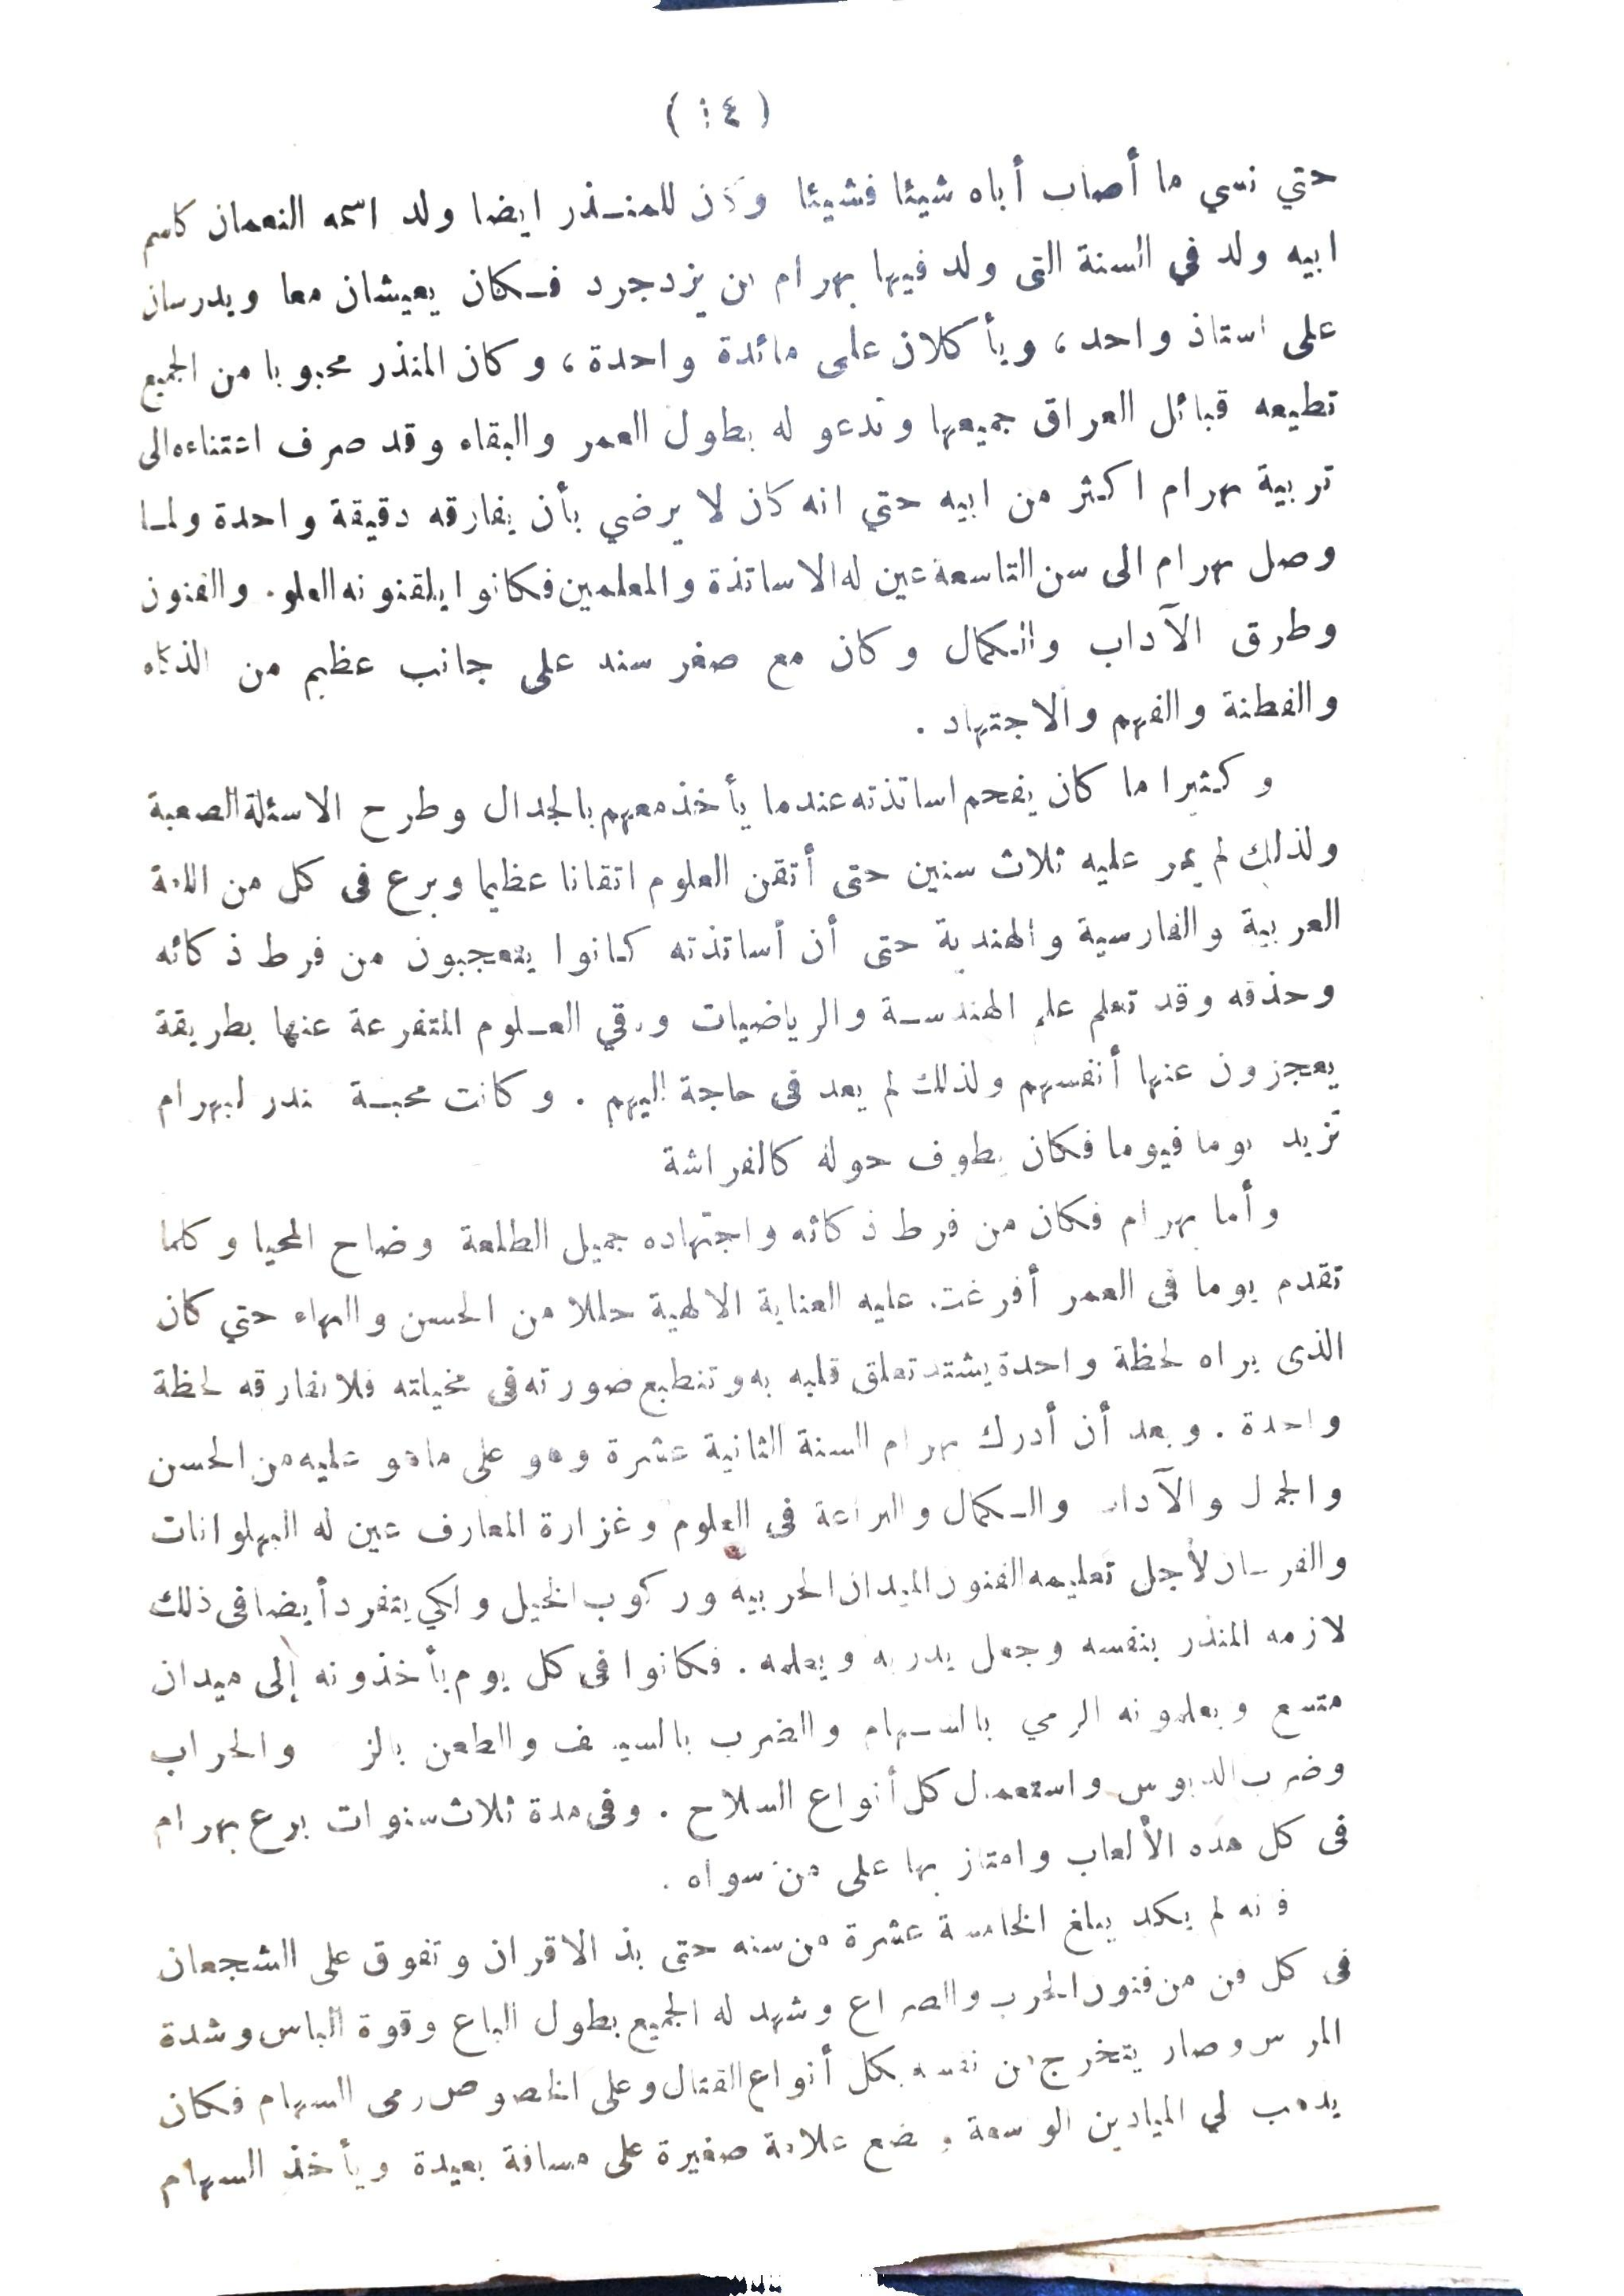 ( ٤ )
حتي نسي ما أصاب أباه شيئا فشيئا وكان للمنذر ايضا ولد اسمه النعمان كاسم
ابيه ولد في السنة التى ولد فيها بهرام بن يزدجرد فكان يعيشان معا ويدرسان
على استاذ واحد ، ويأكلان على مائدة واحدة ، وكان المنذر محبوبا من الجميع
تطيعه قبائل العراق جميعها وتدعو له بطول العمر والبقاء وقد صرف اعتناءه الى
تربية بهرام اكثر من ابيه حتي انه كان لا يرضي بأن يفارقه دقيقة واحدة ولما
وصل بهرام الى سن التاسعة عين له الاساتذة والمعلمين فكانوا يلقنونه العلوم والفنون
وطرق الآداب والكمال وكان مع صغر سنه على جانب عظيم من الذكاء
والفطنة والفهم والاجتهاد .
وكثيرا ما كان يفحم اساتذته عندما يأخذ معهم بالجدال وطرح الاسئلة الصعبة
ولذلك لم يمر عليه ثلاث سنين حتى أتقن العلوم اتقانا عظيما وبرع فى كل من اللغة
العربية والفارسية والهندية حتى أن أساتذته كانوا يتعجبون من فرط ذكائه
وحذقه وقد تعلم علم الهندسة والرياضيات ورقي العلوم المتفرعة عنها بطريقة
يعجزون عنها أنفسهم ولذلك لم يعد فى حاجة اليهم . وكانت محبة المنذر لبهرام
تزيد يوما فيوما فكان يطوف حوله كالفراشة
وأما بهرام فكان من فرط ذكائه واجتهاده جميل الطلعة وضاح المحيا وكلما
تقدم يوما فى العمر أفرغت عليه العناية الالهية حللا من الحسن والبهاء حتي كان
الذى يراه لحظة واحدة يشتد تعلق قلبه به وتنطبع صورته فى مخيلته فلا تفارقه لحظة
واحدة . وبعد أن أدرك بهرام السنة الثانية عشرة وهو على ما هو عليه من الحسن
والجمال والآداب والكمال والبراعة فى العلوم وغزارة المعارف عين له البهلوانات
والفرسان لأجل تعليمه الفنون الميدان الحربيه وركوب الخيل ولكي يتفرد أيضا فى ذلك
لازمه المنذر بنفسه وجعل يدربه ويعلمه . فكانوا فى كل يوم يأخذونه إلى ميدان
متسع ويعلمونه الرمي بالسهام والضرب بالسيف والطعن والحراب
وضرب الدبوس واستعمال كل أنواع السلاح . وفى مدة ثلاث سنوات برع بهرام
فى كل هذه الألعاب وامتاز بها على من سواه .
فانه لم يكد يبلغ الخامسة عشرة من سنه حتى بذ الاقران وتفوق على الشجعان
فى كل فن من فنون الحرب والصراع وشهد له الجميع بطول الباع وقوة الباس وشدة
المراس وصار يتخرج من نفسه بكل أنواع القتال وعلى الخصوص رمى السهام فكان
يذهب الي الميادين الواسعة ويضع علامة صغيرة على مسافة بعيدة ويأخذ السهام